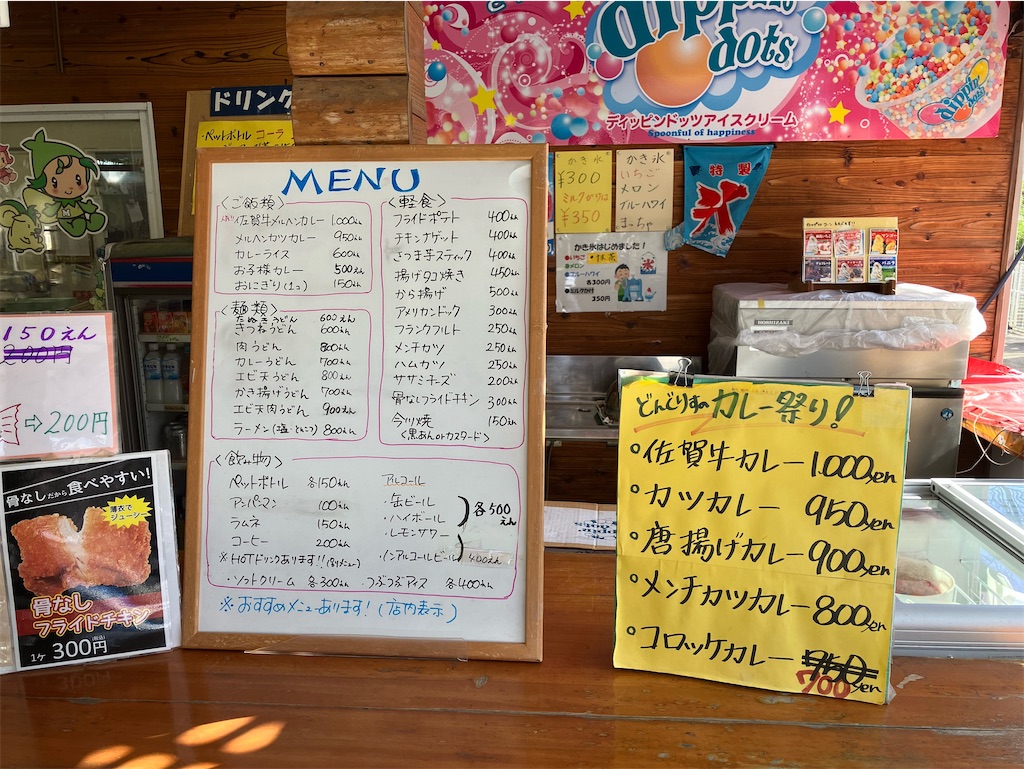 dippin' dots
ディッピンドッツアイスクリーム
Spoonful of happiness
dippin' dots
ドリンク
ペットボトル コーラ
かき氷
¥300
ミルクがけは
¥350
かき氷
いちご
メロン
ブルーハワイ
まっちゃ
特製
氷
かき氷はじめました!
●いちご ●抹茶
●メロン
●ブルーハワイ
各300円
●ミルクがけ
350円
HOSHIZAKI
150えん
200円
⇨200円
骨なしだから食べやすい!
薄衣で
ジューシー
骨なし
フライドチキン
1ケ 300円(税込)
MENU
<ご飯類>
佐賀牛メルヘンカレー 1.000えん
メルヘンカツカレー 950えん
カレーライス 600えん
お子様カレー 500えん
おにぎり(1コ) 150えん
<麺類>
たぬきうどん 600えん
きつねうどん 600えん
肉うどん 800えん
カレーうどん 700えん
エビ天うどん 800えん
かき揚げうどん 700えん
エビ天肉うどん 900えん
ラーメン(塩・とんこつ) 800えん
<軽食>
フライドポテト 400えん
チキンナゲット 400えん
さつま芋スティック 400えん
揚げタコ焼き 450えん
から揚げ 500えん
アメリカンドック 300えん
フランクフルト 250えん
メンチカツ 250えん
ハムカツ 250えん
ササミチーズ 200えん
骨なしフライドチキン 300えん
今川焼 150えん
<黒あんorカスタード>
<飲み物>
ペットボトル 各150えん
アンパンマン 100えん
ラムネ 150えん
コーヒー 200えん
※HOTドリンクあります!!(別メニュー)
アルコール
・缶ビール
・ハイボール
・レモンサワー
各500えん
・ノンアルコールビール 400えん
・ソフトクリーム 各300えん ・つぶつぶアイス 各400えん
※おすすめメニューあります!(店内表示)
どんぐりすのカレー祭り!
°佐賀牛カレー 1.000yen
°カツカレー 950yen
°唐揚げカレー 900yen
°メンチカツカレー 800yen
°コロッケカレー 950 yen
700